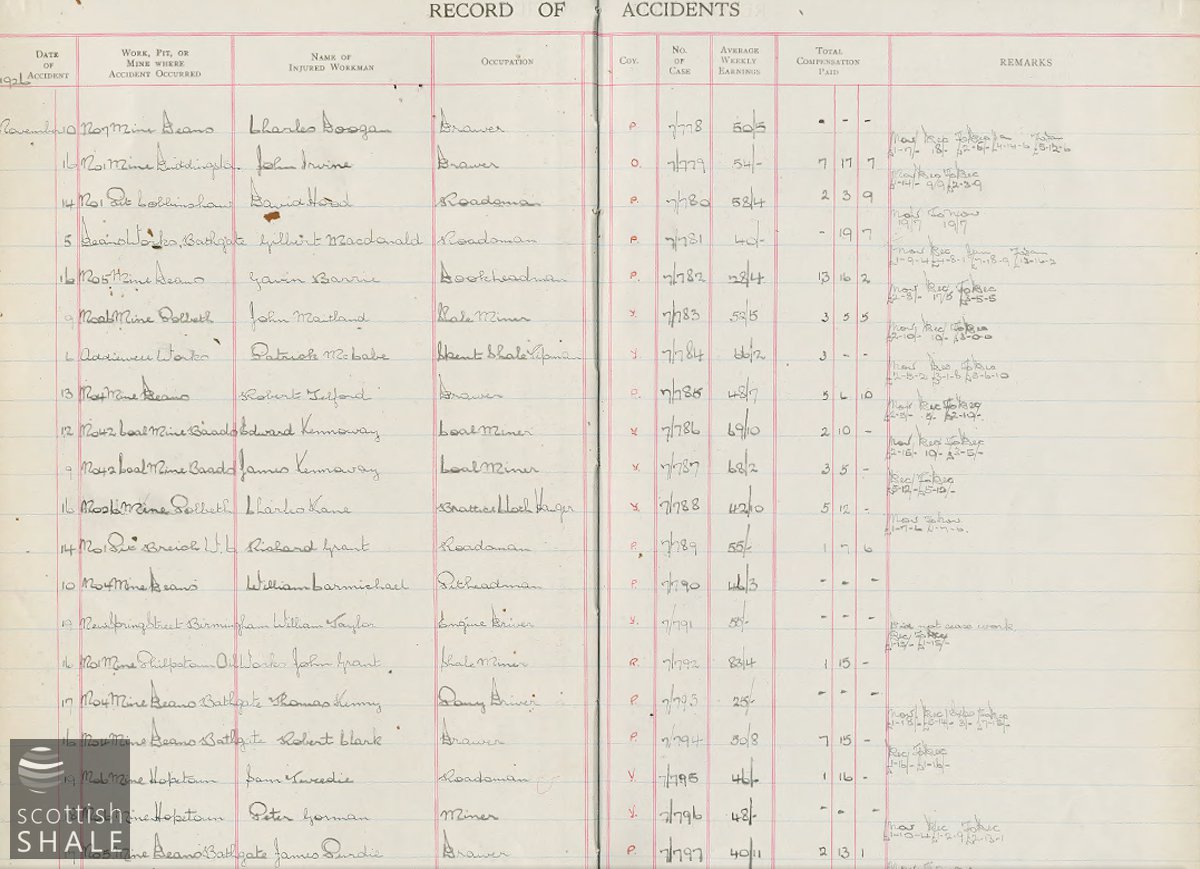 RECORD OF ACCIDENTS
DATE OF ACCIDENT WORK, PIT, OR MINE WHERE ACCIDENT OCCURRED NAME OF INJURED WORKMAN OCCUPATION COY. NO. OF CASE AVERAGE WEEKLY EARNINGS TOTAL COMPENSATION PAID REMARKS
1926
November 10 No 7 Mine Deans Charles Doogan Drawer P. 7/778 50/5 - - -
16 No 1 Mine John Irvine Drawer O. 7/779 54/- 7 17 7
14 No 1 Pit Cobbinshaw David Hood Roadsman P. 7/780 58/4 2 3 9
Nov To Nov
19/7 19/7
5 Deans Works, Bathgate Gilbert Macdonald Roadsman P. 7/781 40/- - 19 7
16 No 5 Mine Deans Gavin Barrie Hookheadman P. 7/782 28/4 13 16 2
9 No 26 Mine Polbeth John Maitland Shale Miner Y. 7/783 53/5 3 5 5
6 Addiewell Works Patrick McCabe Spent Shale Tipman Y. 7/784 66/2 3 - -
13 No 4 Mine Deans Robert Telford Drawer P. 7/785 48/7 5 6 10
12 No 42 Coal Mine Baads Edward Kennoway Coal Miner Y. 7/786 69/10 2 10 -
9 No 42 Coal Mine Baads James Kennoway Coal Miner Y. 7/787 68/2 3 5 -
Dec To Dec
16 No 26 Mine Polbeth Charles Kane Brattice Cloth Hanger Y. 7/788 42/10 5 12 -
Nov To Nov
£1-7-6 £1-7-6
14 No 1 Pit Breich W.C. Richard Grant Roadsman P. 7/789 55/- 1 7 6
10 No 4 Mine Deans William Carmichael Pitheadman P. 7/790 46/3 - - -
19 New Spring Street Birmingham William Taylor Engine Driver Y. 7/791 50/- - - -
Did not cease work
Dec To Dec
£1-15/- £1-15/-
16 No 1 Mine Philpstoun Oil Works John Grant Shale Miner R. 7/792 83/4 1 15 -
17 No 4 Mine Deans Bathgate Thomas Kenny Pony Driver P. 7/793 25/- - - -
16 No 4 Mine Deans Bathgate Robert Clark Drawer P. 7/794 50/8 7 15 -
Dec To Dec
£1-16/- £1-16/-
19 No 6 Mine Hopetoun Sam Tweedie Roadsman Y. 7/795 46/- 1 16 -
Mine Hopetoun Peter Gorman Miner Y. 7/796 48/- - - -
Nov Dec To Dec
£1-10-4 £1-2-9 £2-13-1
17 No 5 Mine Deans Bathgate James Purdie Drawer P. 7/797 40/11 2 13 1
scottish
SHALE